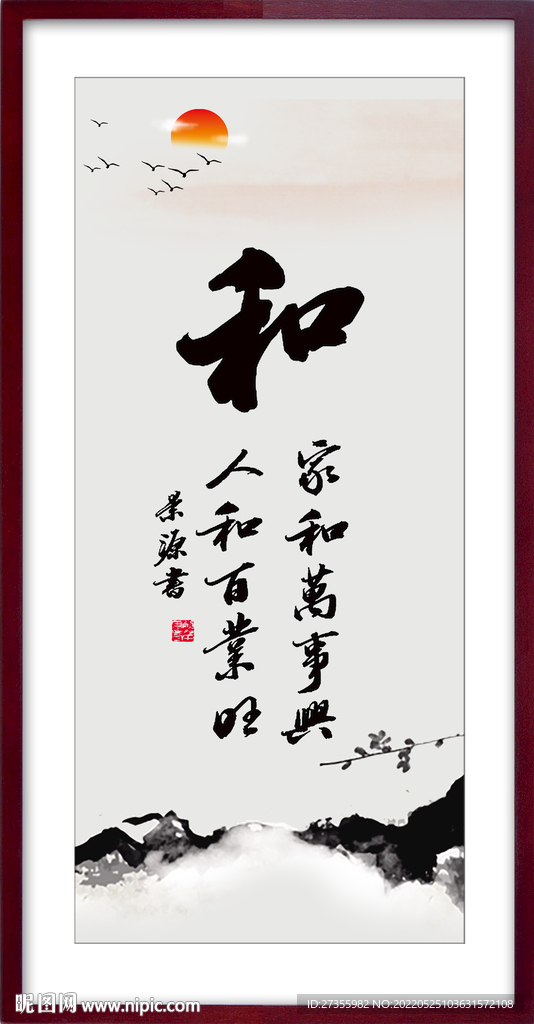 和
家和萬事興
人和百業旺
景源書
昵图网 www.nipic.com
ID:27355982 NO:20220525103631572108